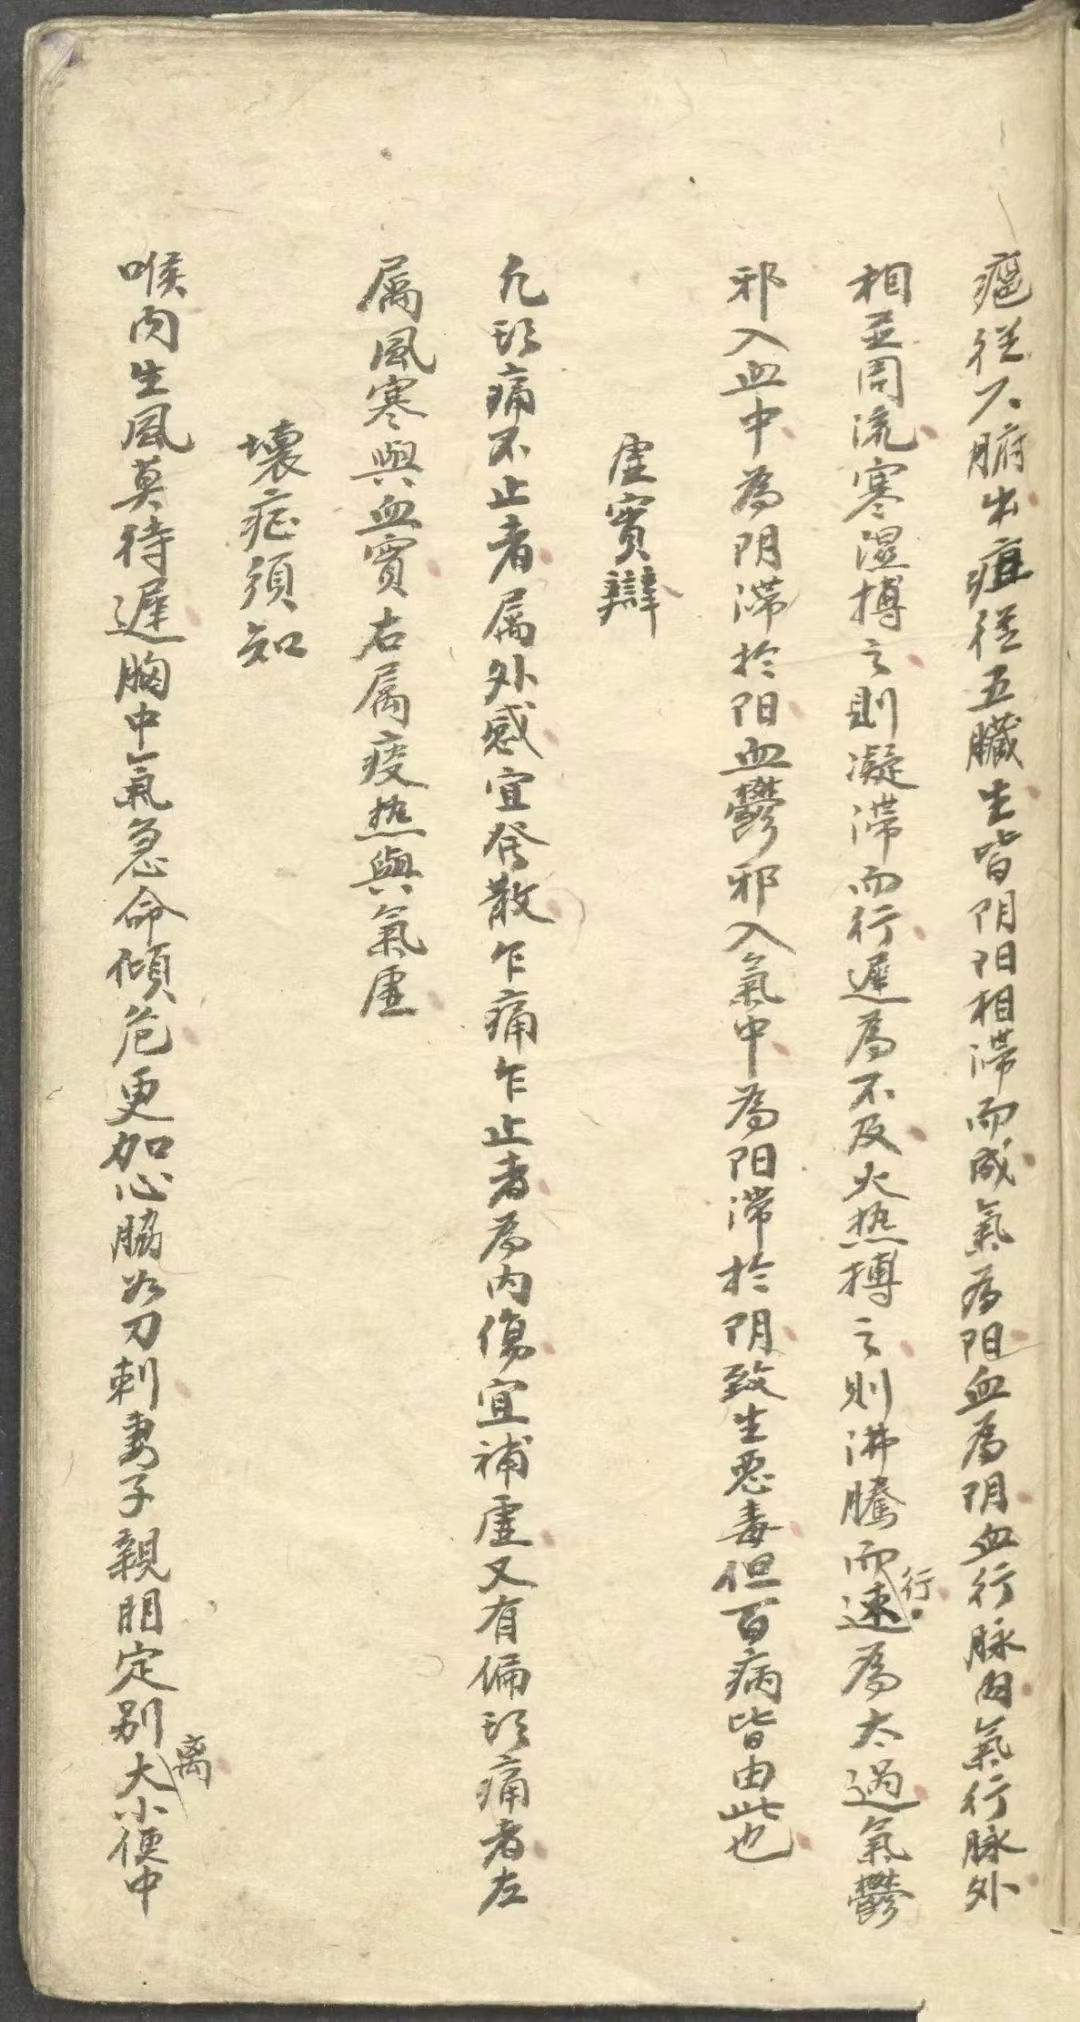 瘟從六腑出疽從五臟生皆阴阳相滞而成氣為阳血為阴血行脉内氣行脉外
相并周流寒湿搏之則凝滞而行遲為不及火热搏之則沸騰而行速為太過氣鬱
邪入血中為阴滞於阳血鬱邪入氣中為阳滞於阴致生惡毒但百病皆由此也
虚實辯
凡頭痛不止者属外感宜發散乍痛乍止者為内傷宜補虚又有偏頭痛者左
属風寒與血實右属痰热與氣虚
壞症須知
喉内生風莫待遲胸中氣急命傾危更加心脇如刀刺妻子親眼定别离大小便中